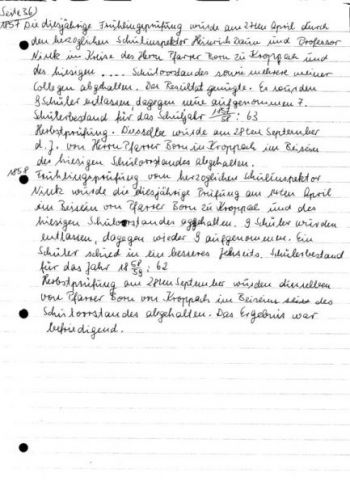 Seite 36)
1857 Die diesjährige Frühlingsprüfung wurde am 27ten April durch
den herzoglichen Schulinspektor Heinrich Daum und Professor
im Kreise des Herrn Pfarrer Born zu Kroppach und
des hiesigen .... Schulvorstandes sowie mehrere meiner
Collegen abgehalten. Das Resultat genügte. Es wurden
9 Schüler entlassen dagegen neue aufgenommen 7.
Schülerbestand für das Schuljahr 1857/58 : 63
Herbstprüfung. Dieselbe wurde am 28ten September
d.J. von Herrn Pfarrer Born in Kroppach im Beisein
des hiesigen Schulvorstandes abgehalten.
1858 Frühlingsprüfung vom herzoglichen Schulinspektor
wurde die diesjährige Prüfung am 14ten April
im Beisein von Pfarrer Born zu Kroppach und des
hiesigen Schulvorstandes abgehalten. 9 Schüler wurden
entlassen, dagegen wieder 9 aufgenommen. Ein
Schüler schied in ein besseres Jenseits. Schülerbestand
für das Jahr 1858/59 : 62
Herbstprüfung am 28ten September wurden dieselben
von Pfarrer Born von Kroppach im Beisein des
Schulvorstandes abgehalten. Das Ergebnis war
befriedigend.